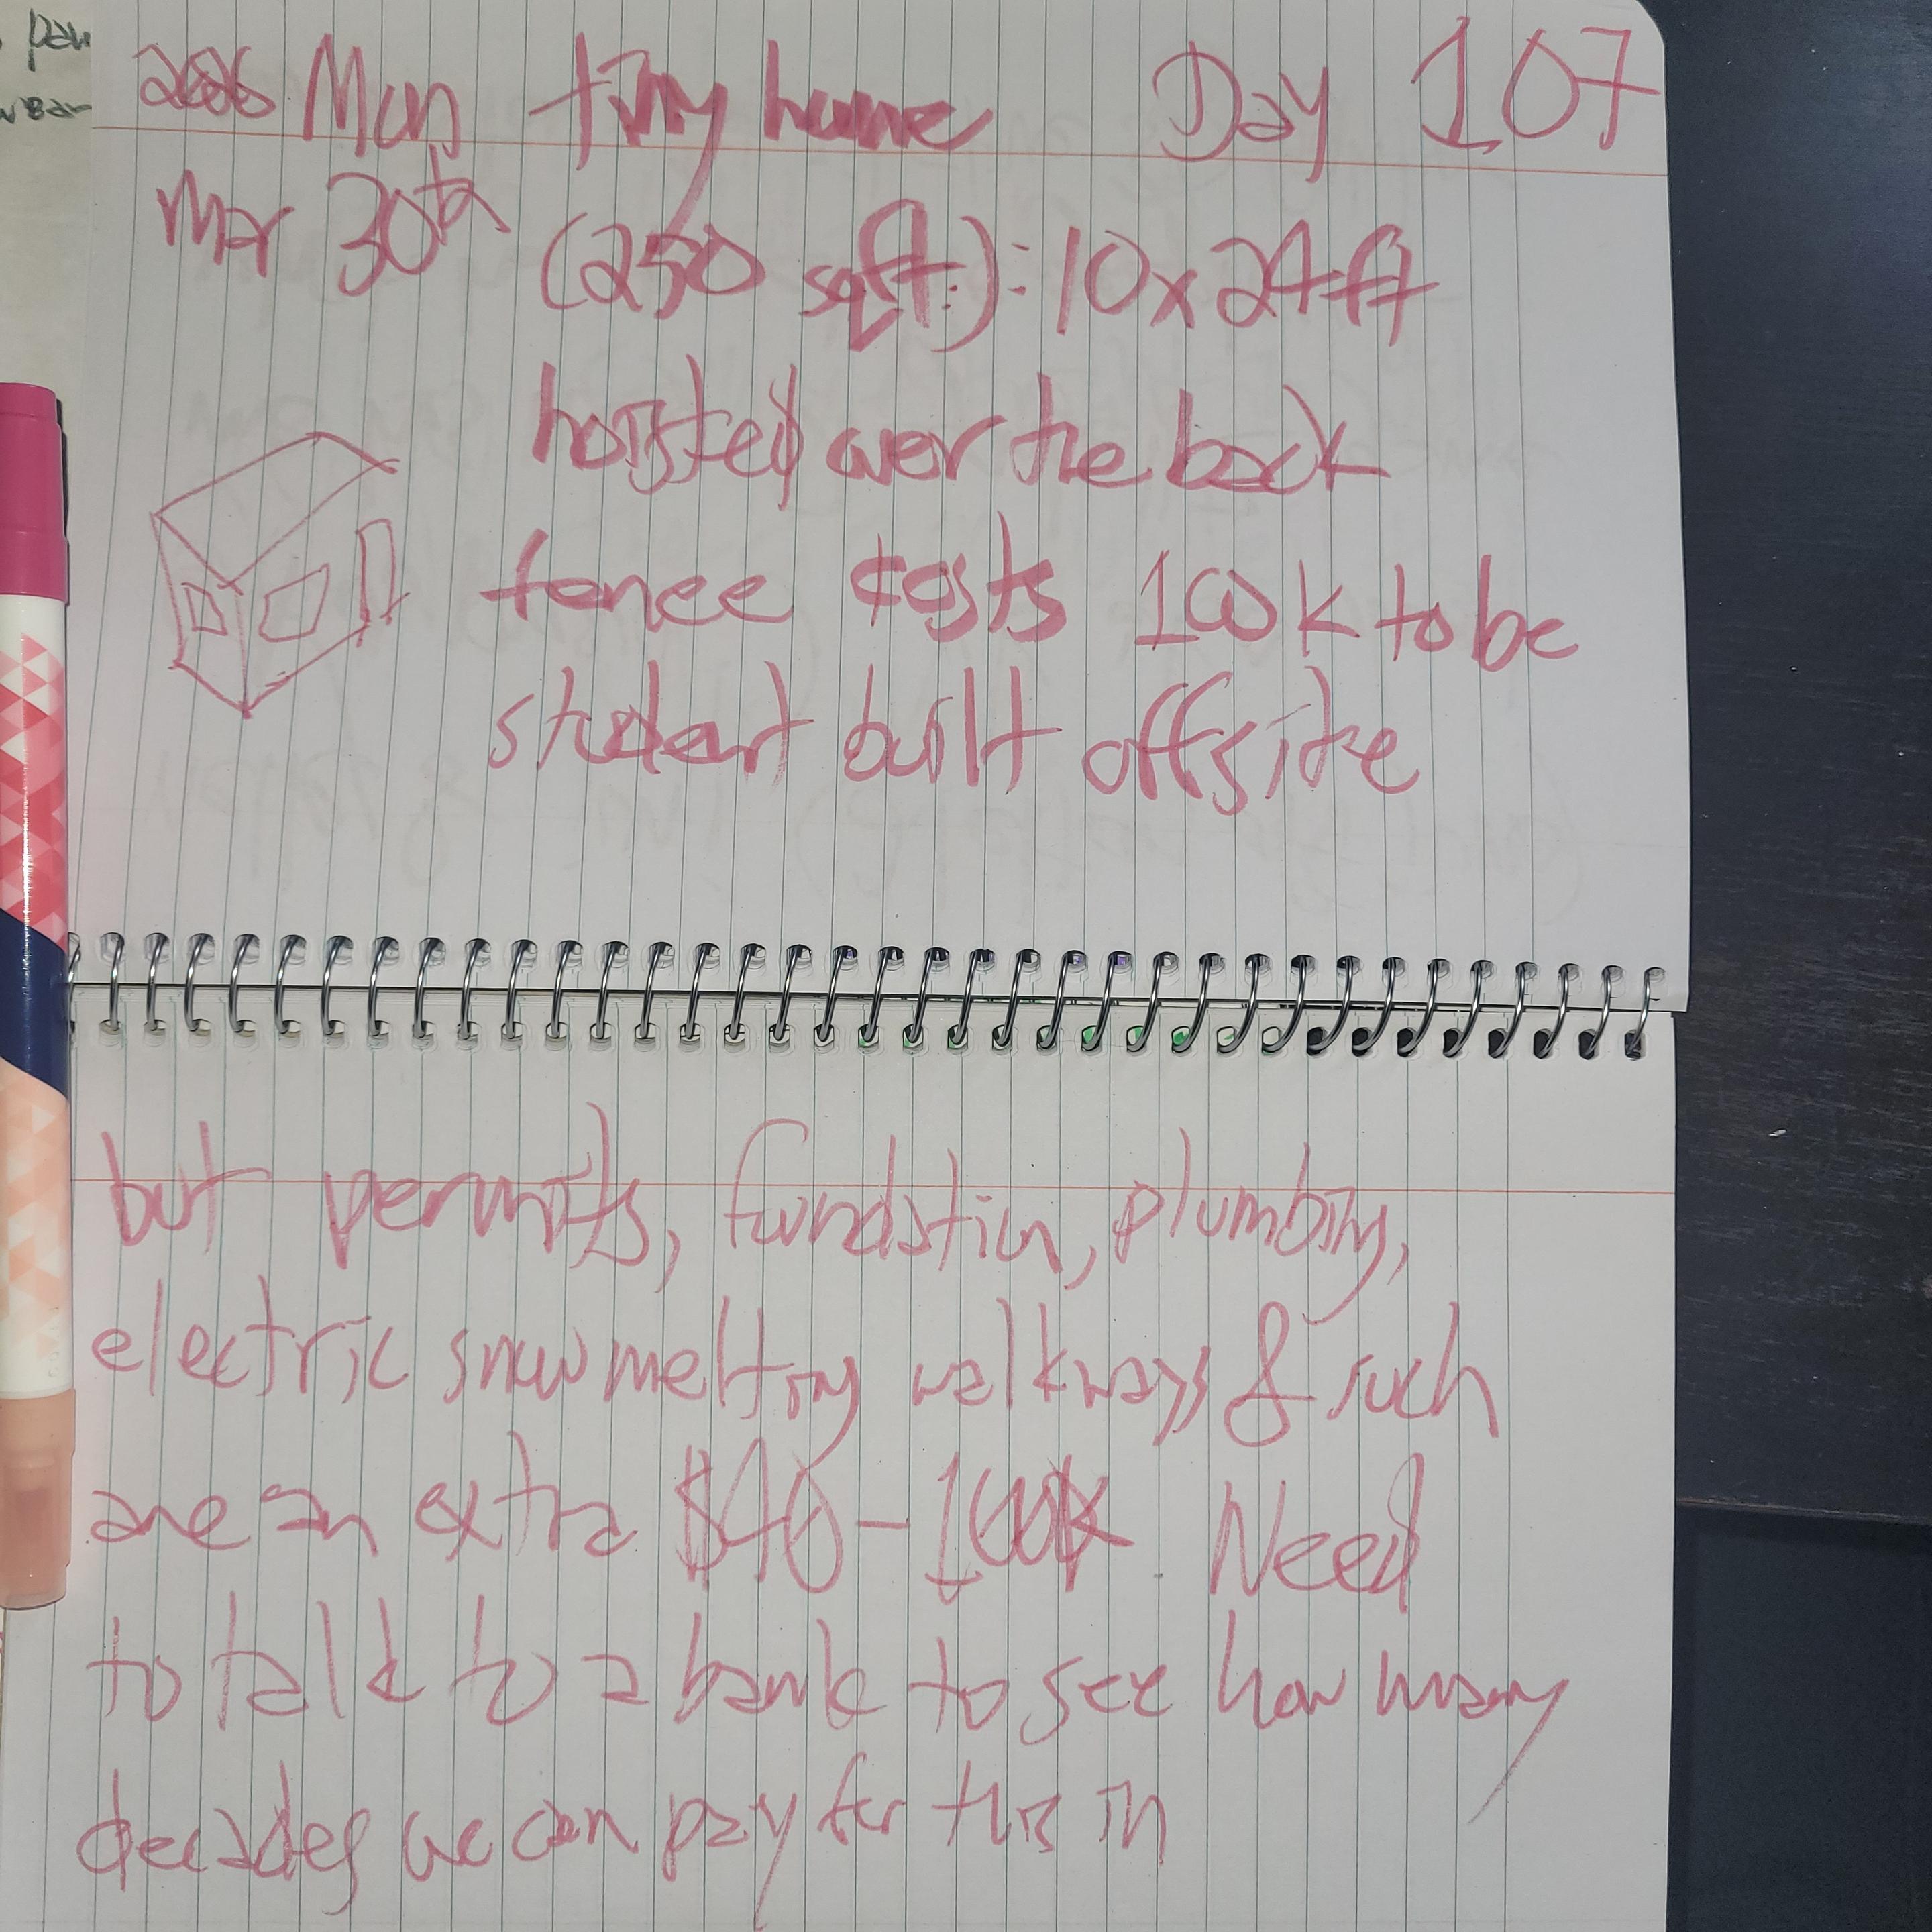 2026 Mon tiny home Day 107
Mar 30th (250 sqft.): 10x24ft
hoisted over the back
fence costs 100k to be
student built offsite
but permits, foundation, plumbing,
electric snow melting walkways & such
are an extra $40-100k. Need
to talk to a bank to see how many
decades we can pay for this in